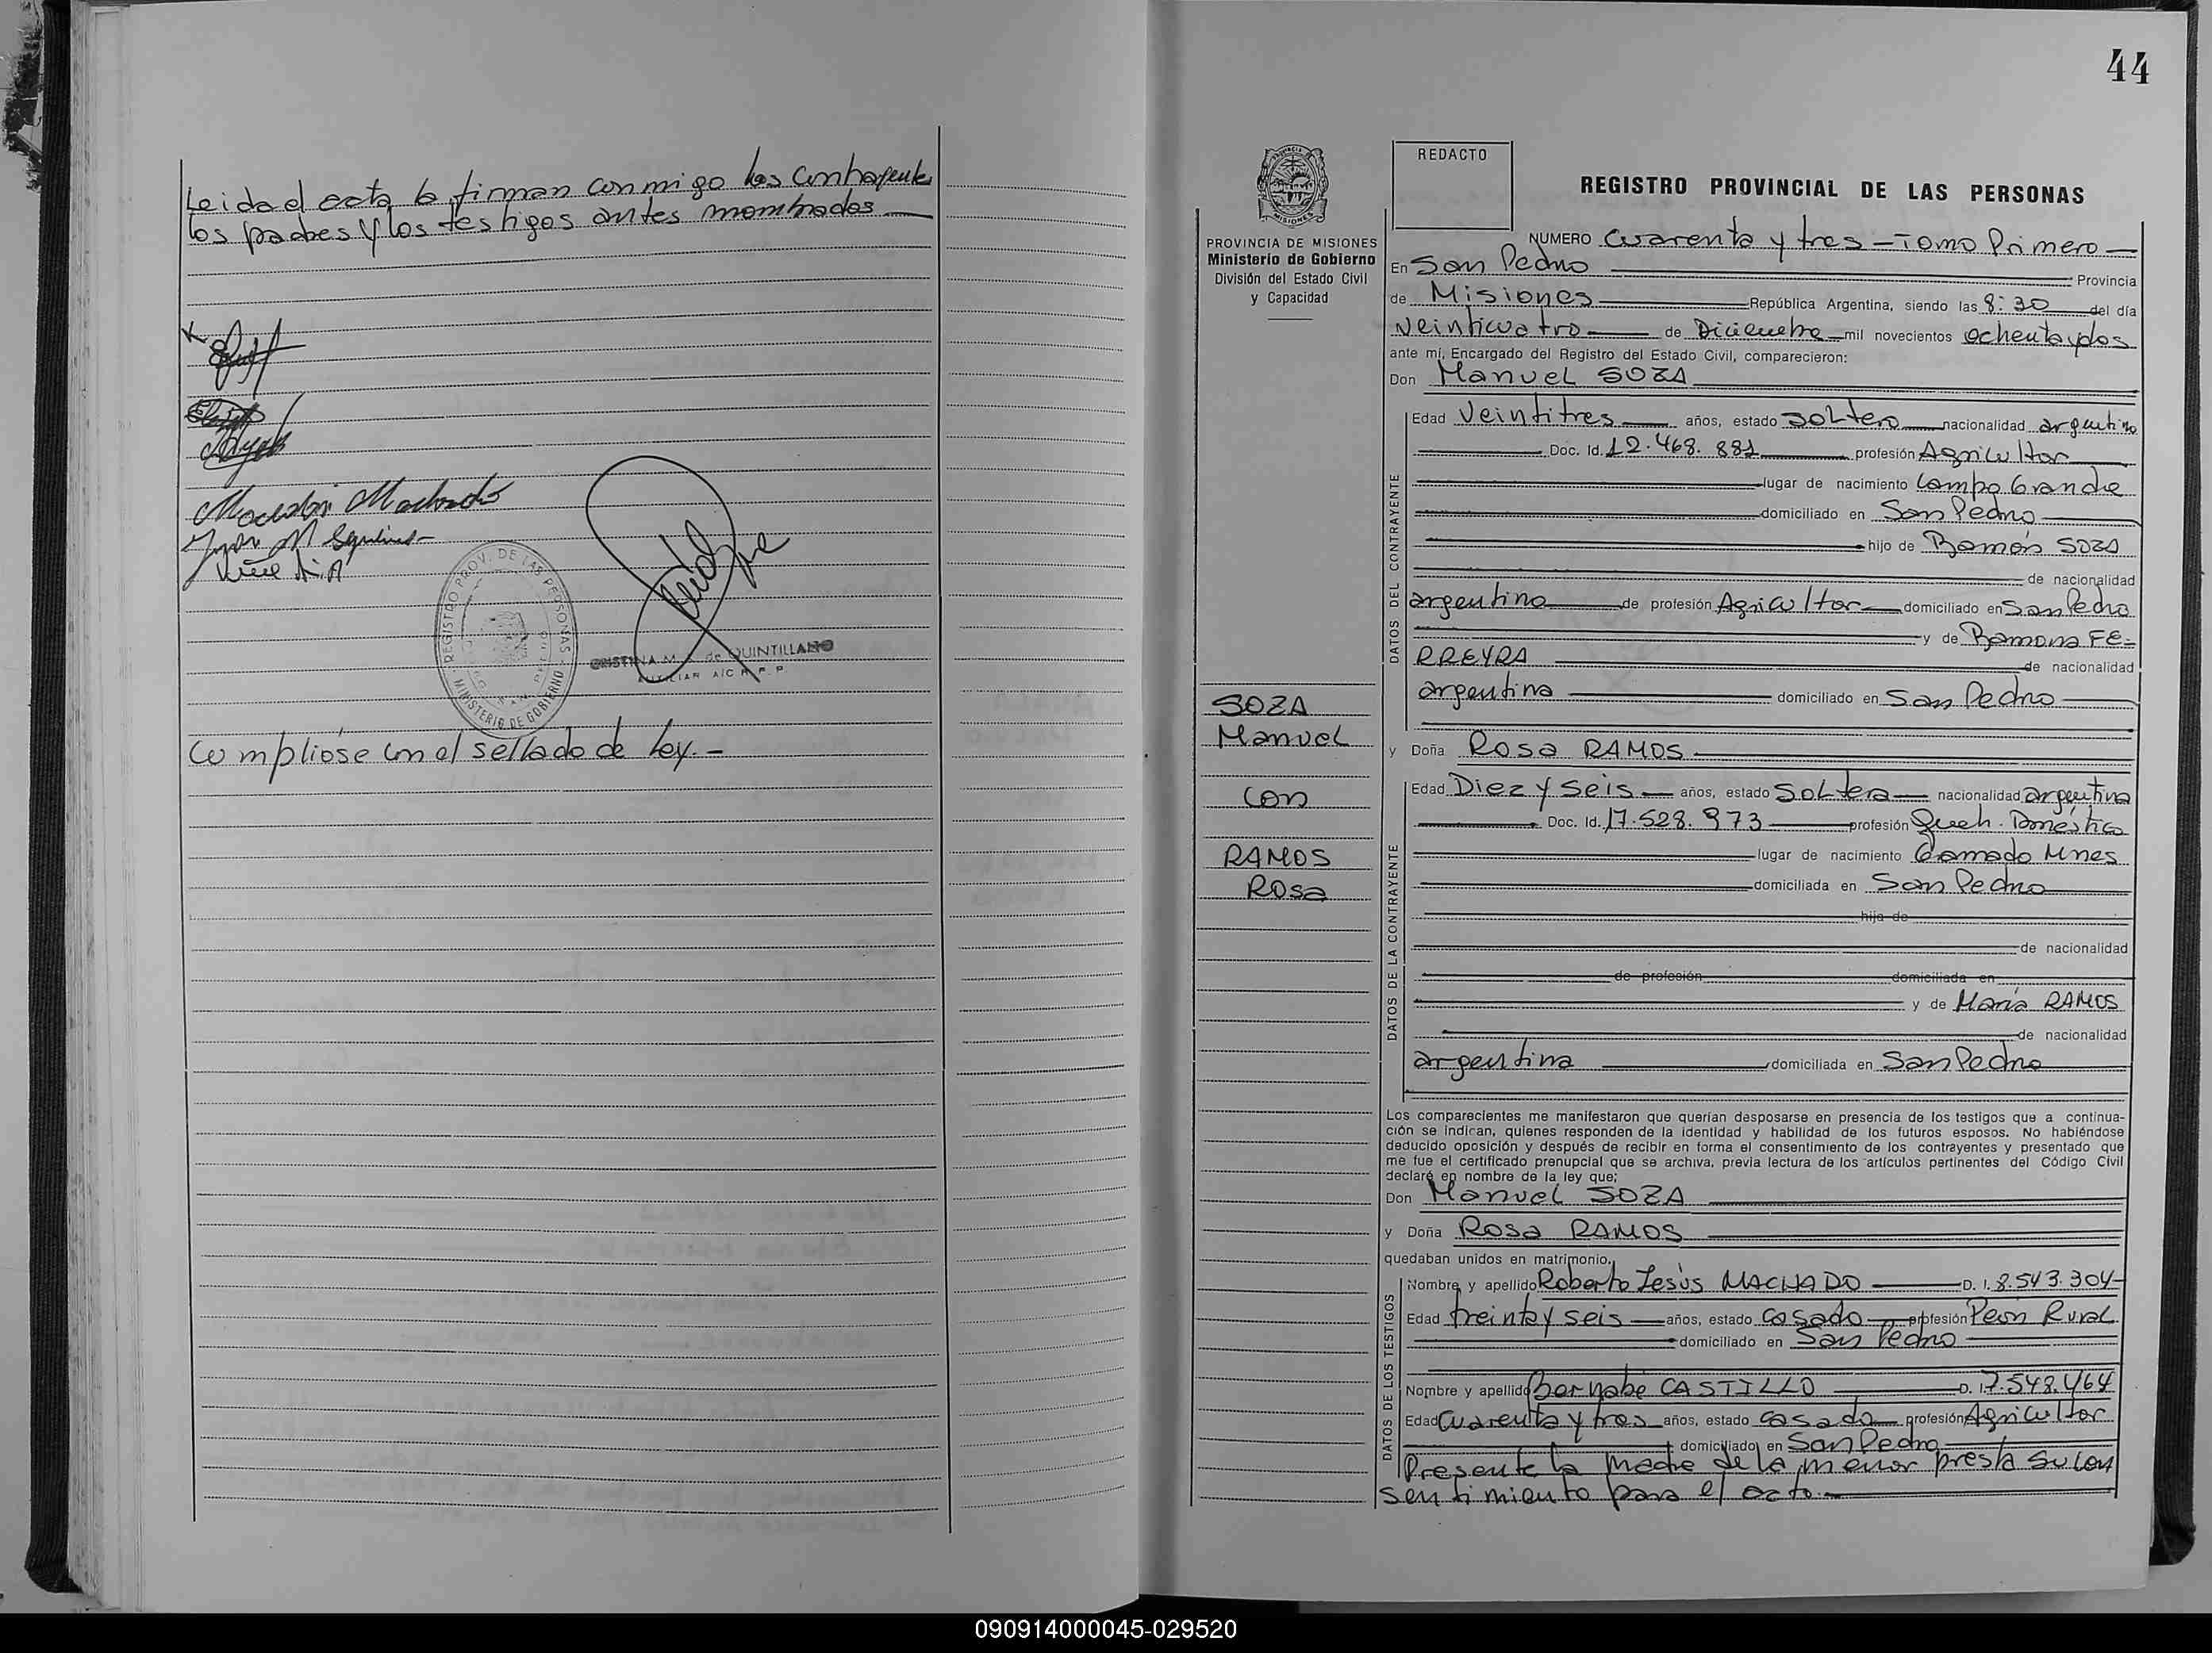 Leida el acta la firman conmigo los contrayentes
los padres y los testigos antes mombrados
CRISTINA M. de QUINTILLANO
REGISTRO PROV. DE LAS PERSONAS
MINISTERIO DE GOBIERNO
Cumpliose con el sellado de Ley.-
44
REDACTO
REGISTRO PROVINCIAL DE LAS PERSONAS
PROVINCIA DE MISIONES
Ministerio de Gobierno
División del Estado Civil
y Capacidad
NUMERO Cuarenta y tres - Tomo Primero
En San Pedro Provincia
de Misiones República Argentina, siendo las 8:30 del día
Veinticuatro de Diciembre mil novecientos ochenta y dos
ante mí, Encargado del Registro del Estado Civil, comparecieron:
Don Manuel SOZA
DATOS DEL CONTRAYENTE
Edad Veintitres años, estado Soltero nacionalidad argentino
Doc. Id. 12.468.881 profesión Agricultor
lugar de nacimiento Campo Grande
domiciliado en San Pedro
hijo de Ramón SOZA
de nacionalidad
argentino de profesión Agricultor domiciliado en San Pedro
y de Ramona FE-
RREYRA de nacionalidad
argentina domiciliado en San Pedro
SOZA
Manuel
con
RAMOS
Rosa
y Doña Rosa RAMOS
DATOS DE LA CONTRAYENTE
Edad Diez y Seis años, estado Soltera nacionalidad argentina
Doc. Id. 17.528.973 profesión Queh. Doméstico
lugar de nacimiento Gramado Mnes
domiciliada en San Pedro
hija de
de nacionalidad
de profesión domiciliada en
y de María RAMOS
de nacionalidad
argentina domiciliada en San Pedro
Los comparecientes me manifestaron que querían desposarse en presencia de los testigos que a continua-
ción se indican, quienes responden de la identidad y habilidad de los futuros esposos. No habiéndose
deducido oposición y después de recibir en forma el consentimiento de los contrayentes y presentado que
me fue el certificado prenupcial que se archiva, previa lectura de los artículos pertinentes del Código Civil
declaré en nombre de la ley que;
Don Manuel SOZA
y Doña Rosa RAMOS
quedaban unidos en matrimonio.
DATOS DE LOS TESTIGOS
Nombre y apellido Roberto Jesús MACHADO D. I. 8.543.304
Edad treinta y seis años, estado casado profesión Peón Rural
domiciliado en San Pedro
Nombre y apellido Bernabé CASTILLO D. I. 7.548.464
Edad Cuarenta y tres años, estado casado profesión Agricultor
domiciliado en San Pedro
Presente la madre de la menor presta su con
sentimiento para el acto.
090914000045-029520